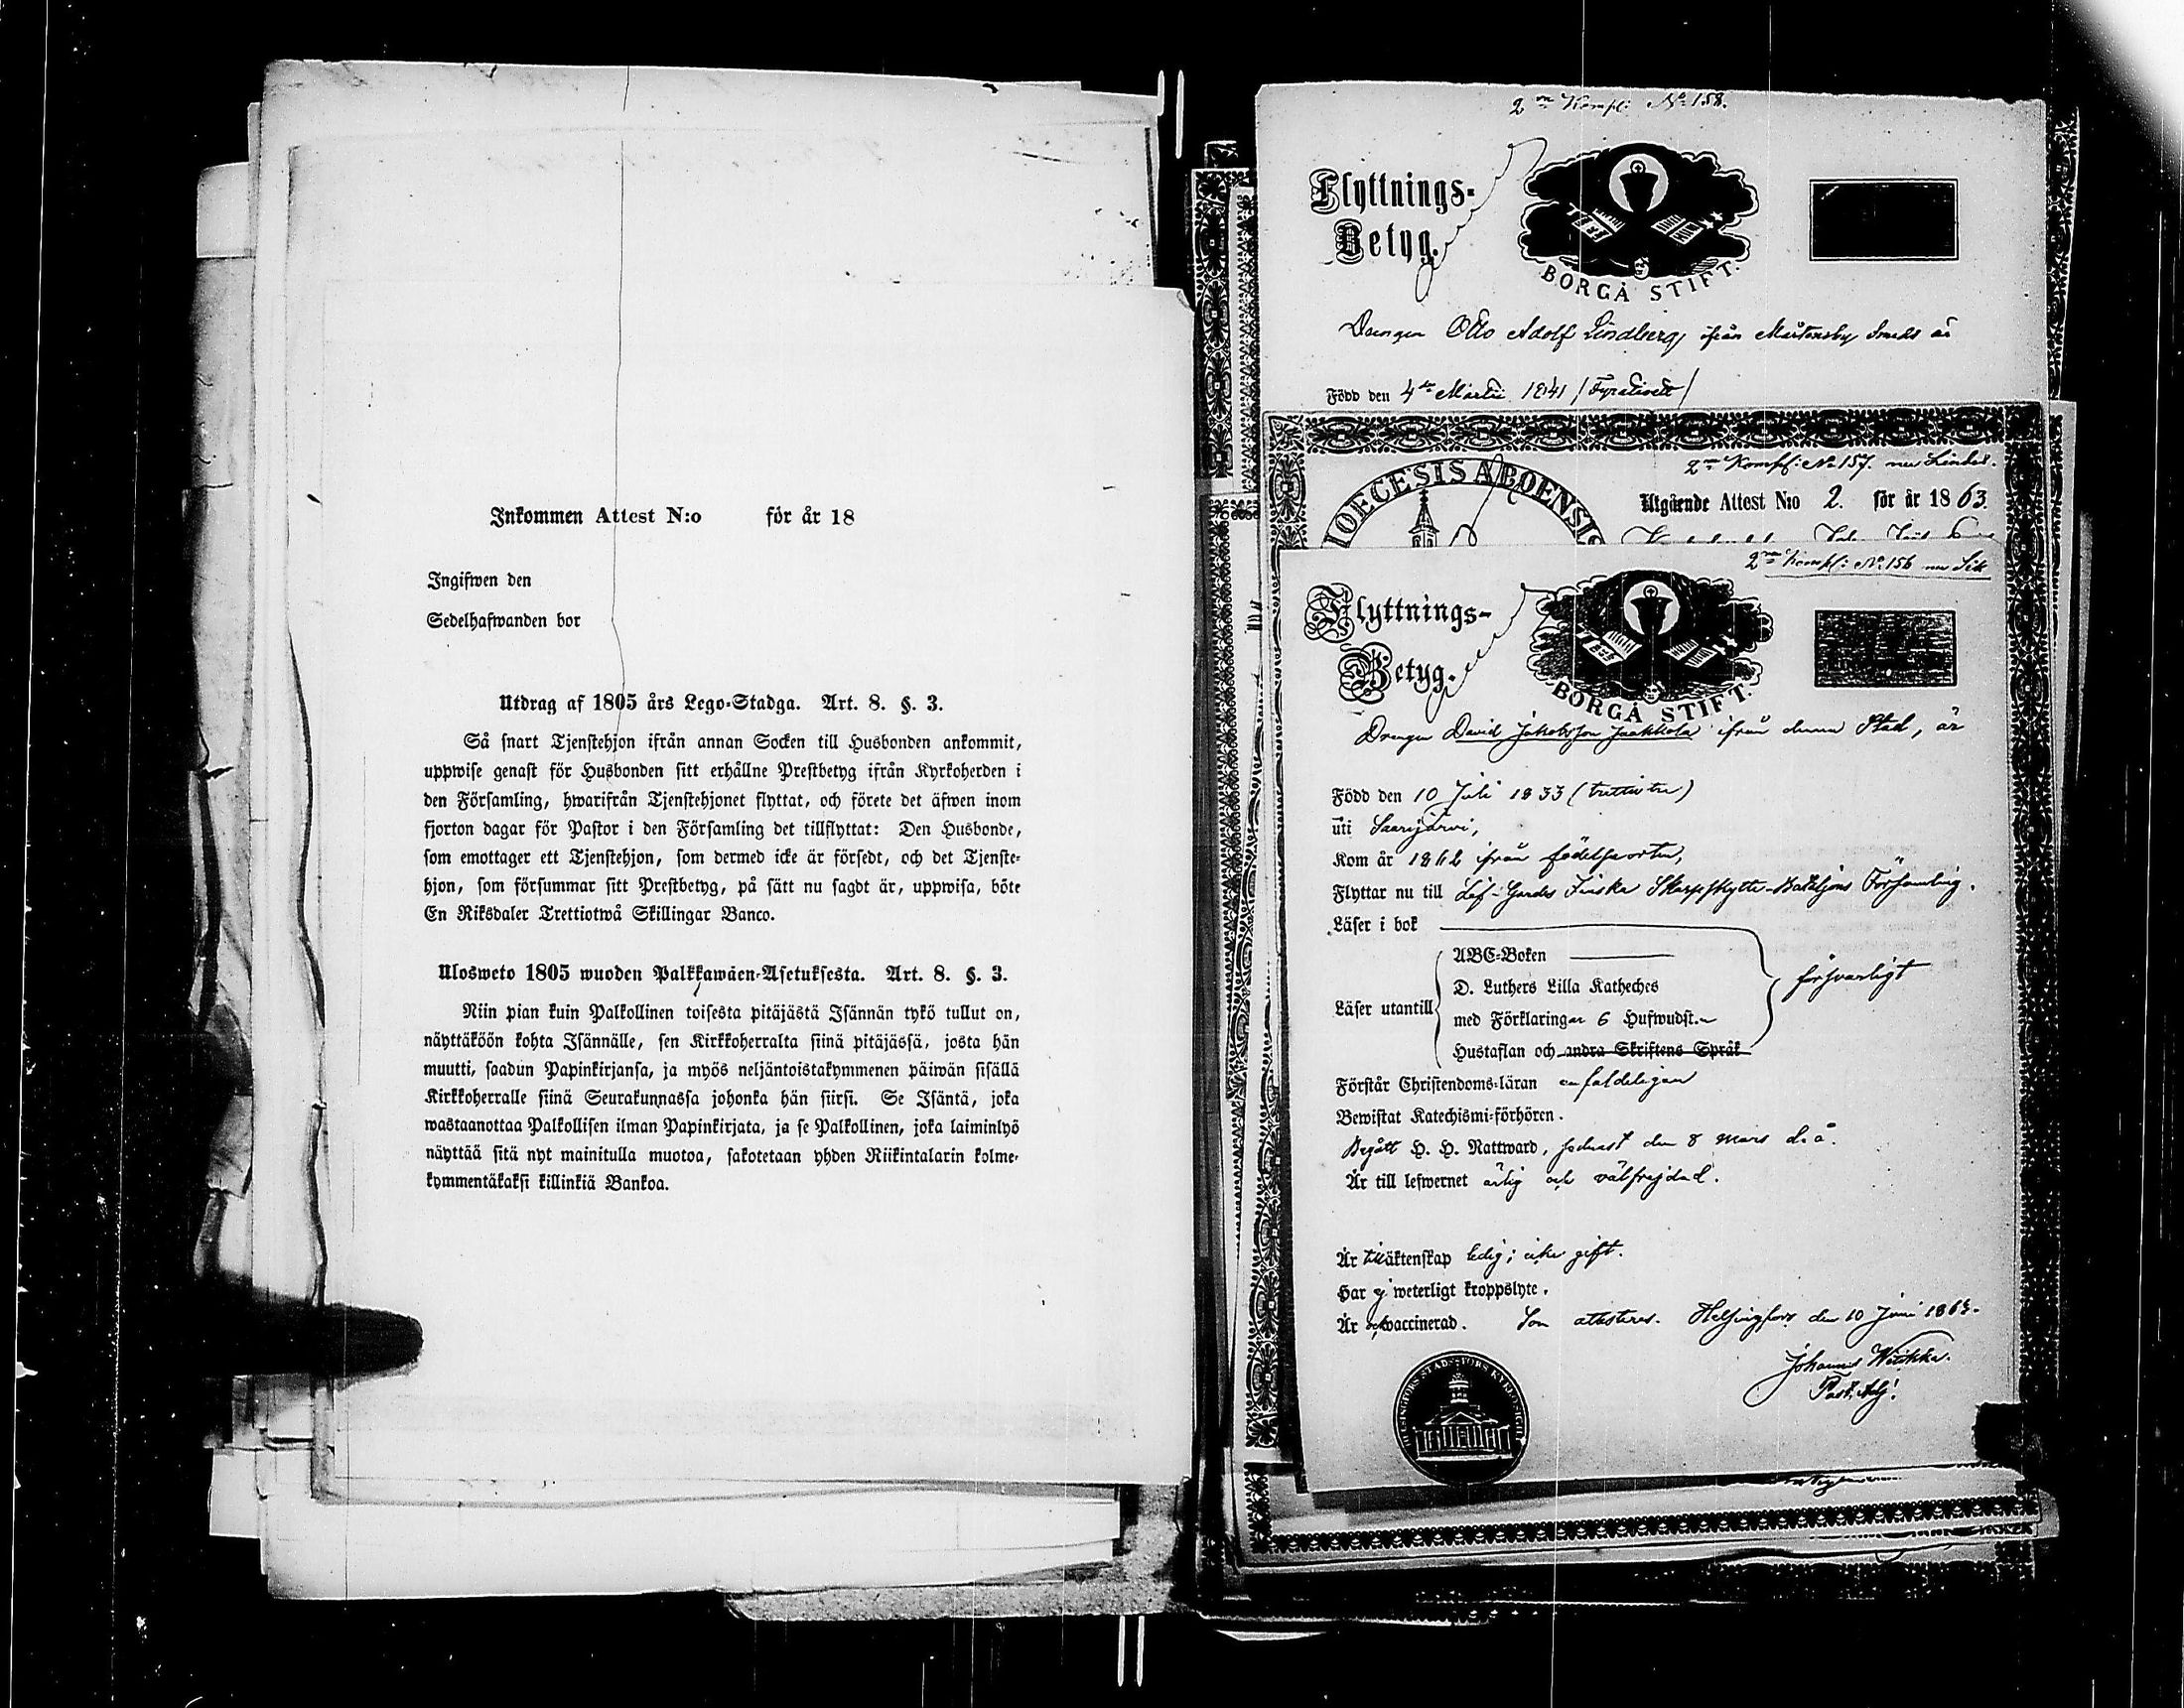 Inkommen Attest N:o för år 18
Ingifwen den
Sedelhafwanden bor
Utdrag af 1805 års Lego-Stadga. Art. 8. §. 3.
Så snart Tjenstehjon ifrån annan Socken till Husbonden ankommit,
uppwise genast för Husbonden sitt erhållne Prestbetyg ifrån Kyrkoherden i
den Församling, hwarifrån Tjenstehjonet flyttat, och förete det äfwen inom
fjorton dagar för Pastor i den Församling det tillflyttat: Den Husbonde,
som emottager ett Tjenstehjon, som dermed icke är försedt, och det Tjenste-
hjon, som försummar sitt Prestbetyg, på sätt nu sagdt är, uppwisa, böte
En Riksdaler Trettiotwå Skillingar Banco.
Ulosweto 1805 wuoden Palkkawäen-Asetuksesta. Art. 8. §. 3.
Niin pian kuin Palkollinen toisesta pitäjästä Isännän tykö tullut on,
näyttäköön kohta Isännälle, sen Kirkkoherralta siinä pitäjässä, josta hän
muutti, saadun Papinkirjansa, ja myös neljäntoistakymmenen päiwän sisällä
Kirkkoherralle siinä Seurakunnassa johonka hän siirsi. Se Isäntä, joka
wastaanottaa Palkollisen ilman Papinkirjata, ja se Palkollinen, joka laiminlyö
näyttää sitä nyt mainitulla muotoa, sakotetaan yhden Riikintalarin kolme-
kymmentäkaksi killinkiä Bankoa.
2ra Kompl: No 158.
Flyttnings-
Betyg.
BORGÅ STIFT.
Drengen Otto Adolf Lindberg, ifrån Mårtensby är
Född den 4de Martii 1841 /Fyrationett/
DIOECESIS ABOENSIS
2ra Kompl: No 157.
Utgående Attest N:o 2. för år 1863.
2ra Kompl: No 156
Flyttnings-
Betyg.
BORGÅ STIFT.
Drengen David Jakobsson Jaakkola ifrån denna Stad, är
Född den 10 Juli 1833 (trettitre)
uti Saarijärvi,
Kom år 1862 ifrån födelseorten,
Flyttar nu till Lif-Gardes Finska Skarpskytte-Bataljons Församling.
Läser i bok
ABC-Boken
D. Luthers Lilla Katheches
försvarligt
Läser utantill
med Förklaringar 6 Hufwudst.
Hustaflan och andra Skriftens Språk
Förstår Christendoms-läran enfaldeligen
Bewistat Katechismi-förhören.
Begått H. H. Nattward, sednast den 8 Mars d. å.
Är till lefwernet ärlig och välfrejdad.
Är till äktenskap ledig; icke gift.
Har ej weterligt kroppslyte.
Är ock waccinerad. Som attesteras. Helsingfors den 10 Juni 1863.
Past. Adj.